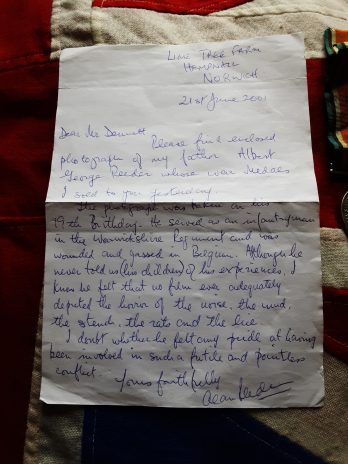 LIME TREE FARM
HEMPNALL
NORWICH
21st June 2001
Dear Mr Dennett
Please find enclosed
photograph of my father Albert
George Reeder whose war medals
I sold to you yesterday.
The photograph was taken on his
19th Birthday. He served as an infantryman
in the Warwickshire Regiment and was
wounded and gassed in Belgium. Although he
never told us (his children) of his experiences, I
know he felt that no film ever adequately
depicted the horror of the noise, the mud,
the stench, the rats and the lice.
I doubt whether he felt any pride at having
been involved in such a futile and pointless
conflict.
Yours faithfully
Alan Reeder